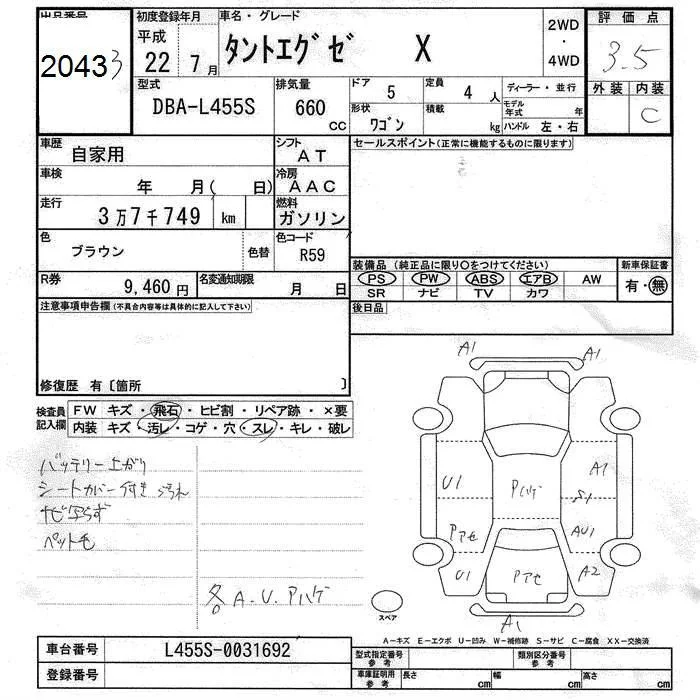 出品番号 初度登録年月 車名・グレード 2WD・4WD 評価点
20433 平成22 7月 タントエグゼ X 3.5
型式 排気量 ドア 5 定員 4人 ディーラー・並行 外装 内装
DBA-L455S 660cc 形状 ワゴン 積載 kg モデル年式 年 C
ハンドル 左・右
車歴 自家用 シフト AT セールスポイント(正常に機能するものに限ります)
車検 年 月( 日) 冷房 AAC
走行 3万7千749 km 燃料 ガソリン
色 ブラウン 色替 色コード R59
装備品 (純正品に限り○をつけてください) 新車保証書
R券 9,460円 名変通知期限 月 日 PS PW ABS エアB AW 有・無
SR ナビ TV カワ
注意事項申告欄(不具合内容等は具体的に記入して下さい) 後日品
修復歴 有〔箇所 〕
検査員記入欄 FW キズ・飛石・ヒビ割・リペア跡・×要
内装 キズ・汚レ・コゲ・穴・スレ・キレ・破レ
バッテリー上がり
シートカバー付き 汚れ
ナビ写らず
ペット毛
各A.U.Pハゲ
A1 A1
U1 Pハゲ A1
S1
Pアセ AU1
U1 Pアセ A2
スペア A1
A-キズ E-エクボ U-凹み W-補修跡 S-サビ C-腐食 XX-交換済
車台番号 L455S-0031692 型式指定番号 参考 類別区分番号 参考
登録番号 車庫証明用 参考 長さ cm 幅 cm 高さ cm